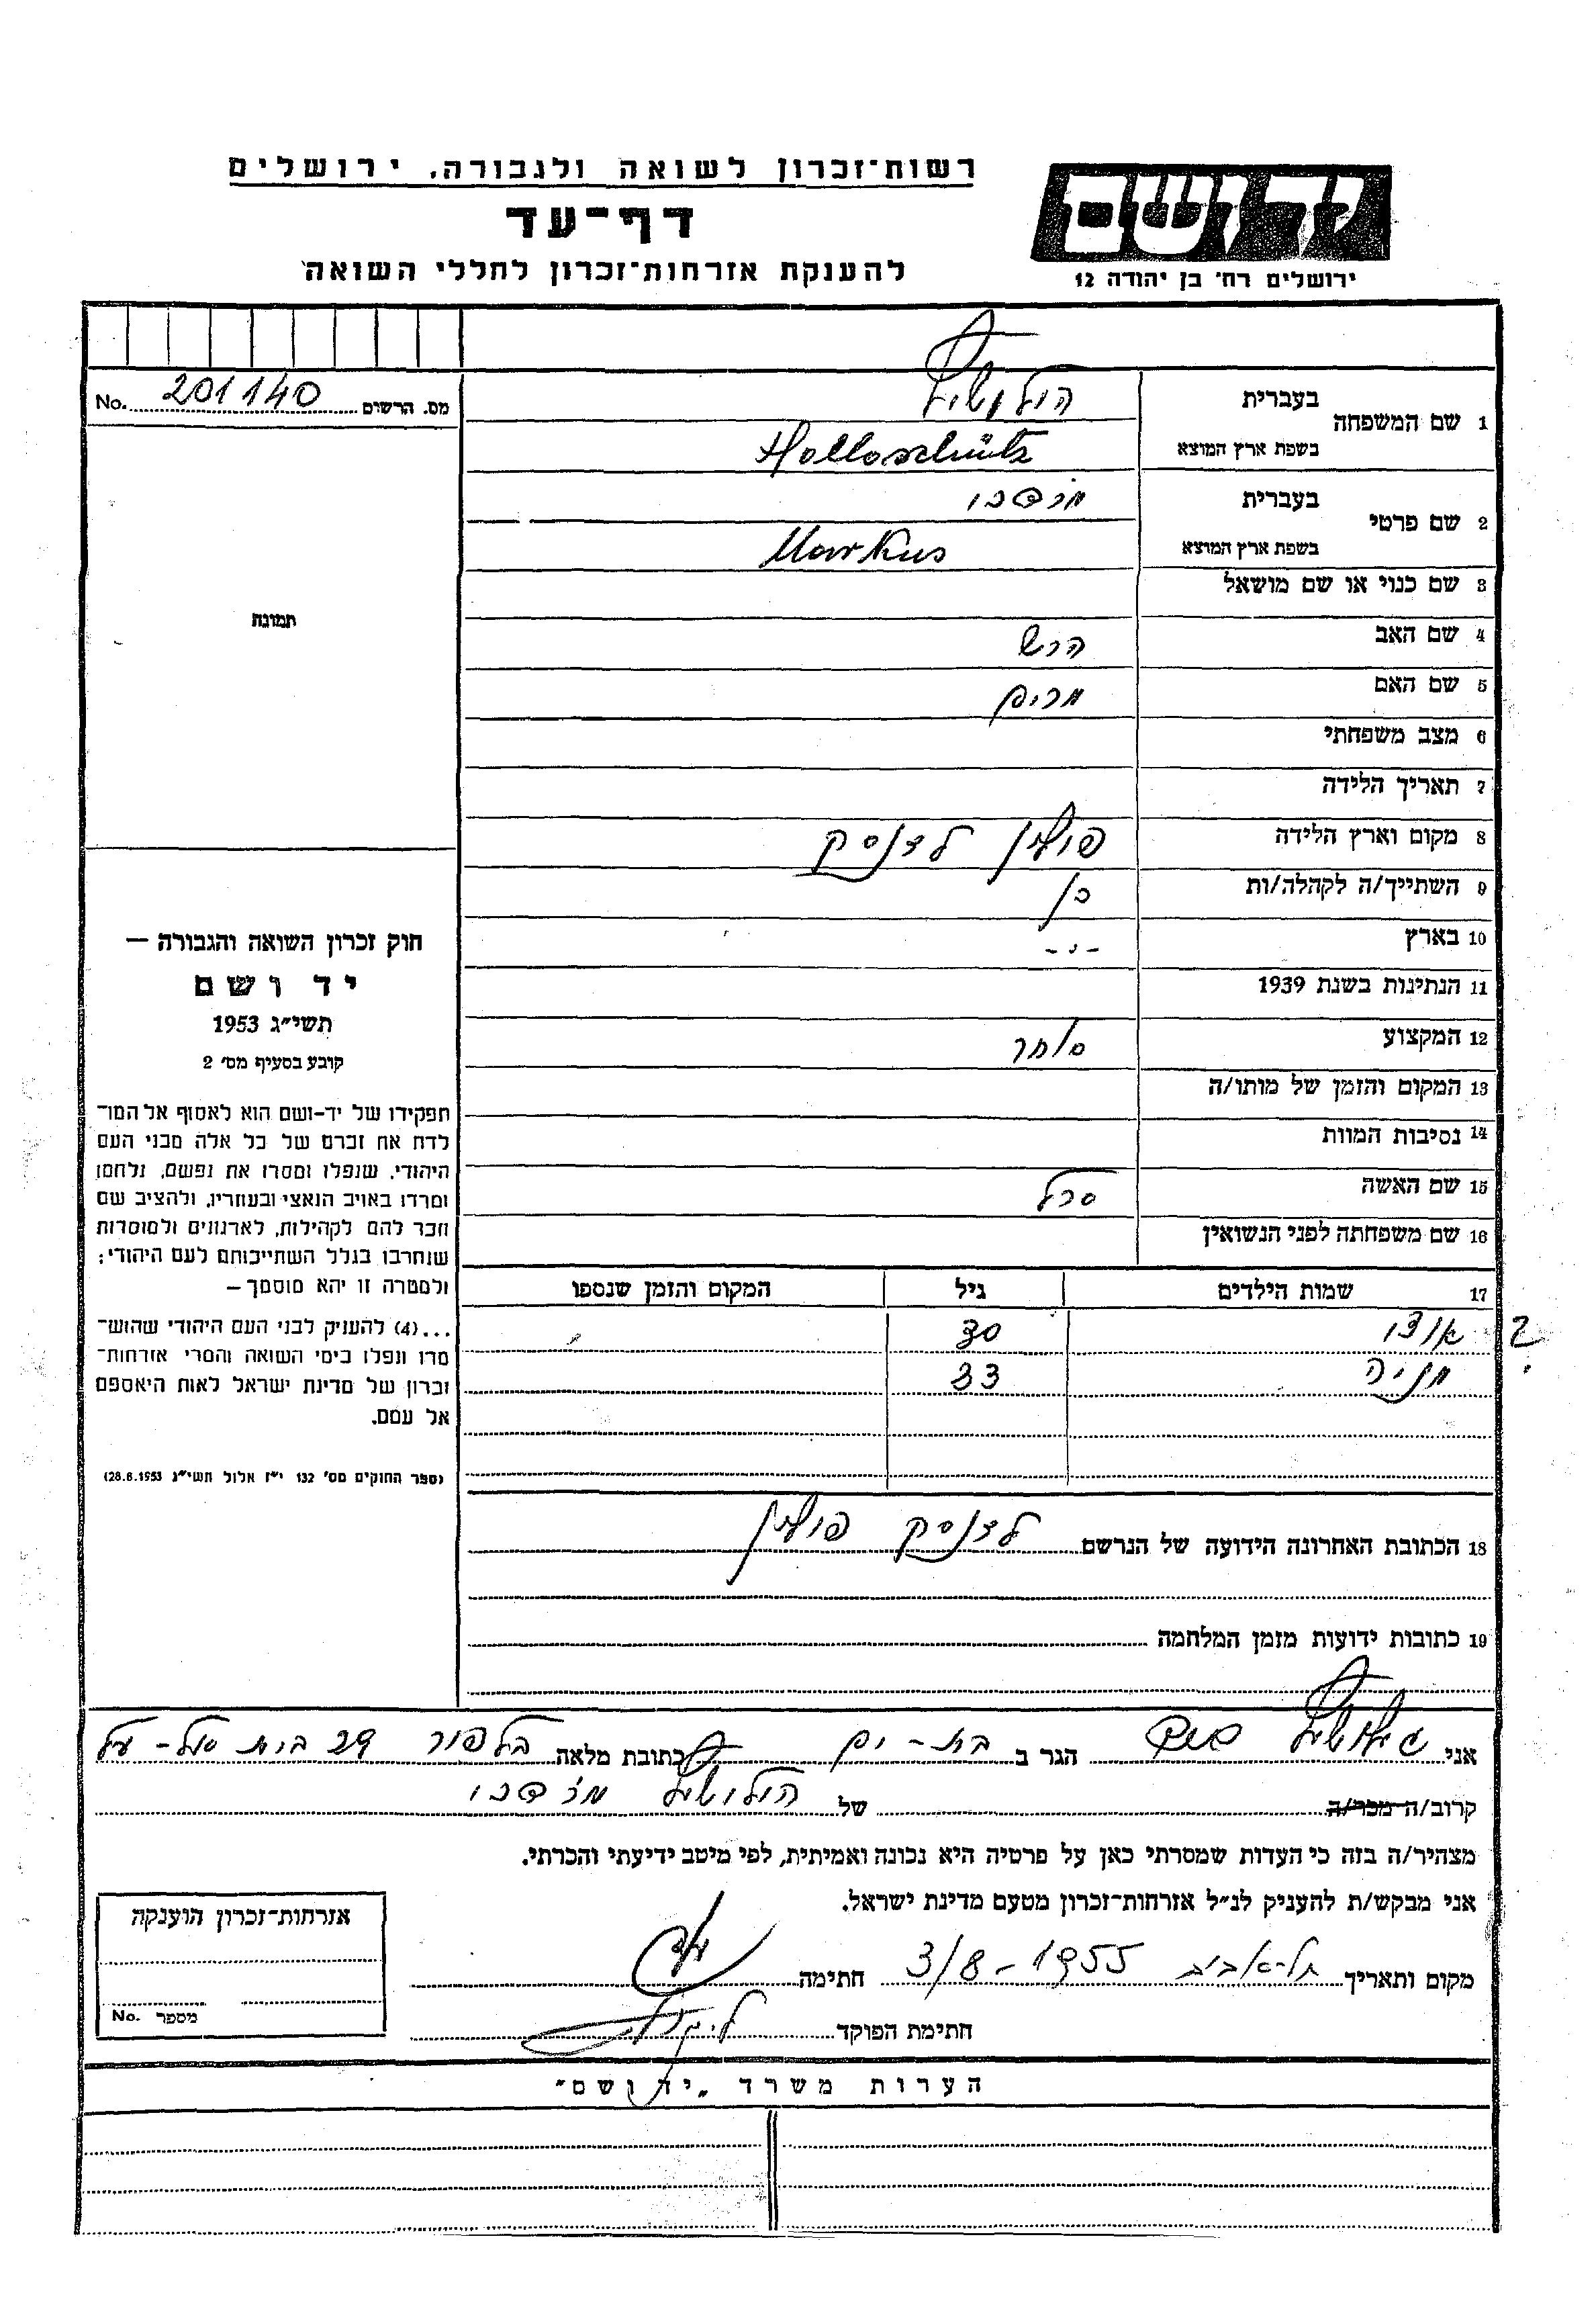 רשות־זכרון לשואה ולגבורה, ירושלים
דף־עד
להענקת אזרחות־זכרון לחללי השואה
יד ושם
ירושלים רח׳ בן יהודה 12
מס. הרשום 201140 No.
תמונה
חוק זכרון השואה והגבורה —
יד ושם
תשי״ג 1953
קובע בסעיף מס׳ 2
תפקידו של יד-ושם הוא לאסוף אל המו־
לדת את זכרם של כל אלה מבני העם
היהודי, שנפלו ומסרו את נפשם, נלחמו
ומרדו באויב הנאצי ובעוזריו, ולהציב שם
וזכר להם לקהילות, לארגונים ולמוסדות
שנחרבו בגלל השתייכותם לעם היהודי;
ולמטרה זו יהא מוסמך —
...(4) להעניק לבני העם היהודי שהוש־
מדו ונפלו בימי השואה והמרי אזרחות־
זכרון של מדינת ישראל לאות היאספם
אל עמם.
(ספר החוקים מס׳ 132 י״ז אלול תשי״ג 28.8.1953)
1 שם המשפחה בעברית
בשפת ארץ המוצא Holloschütz
2 שם פרטי בעברית
בשפת ארץ המוצא Markus
3 שם כנוי או שם מושאל
4 שם האב הרש
5 שם האם מרים
6 מצב משפחתי
7 תאריך הלידה
8 מקום וארץ הלידה פולין
9 השתייך/ה לקהלה/ות כן
10 בארץ -״-
11 הנתינות בשנת 1939
12 המקצוע סוחר
13 המקום והזמן של מותו/ה
14 נסיבות המוות
15 שם האשה
16 שם משפחתה לפני הנשואין
17 שמות הילדים גיל המקום והזמן שנספו
33
18 הכתובת האחרונה הידועה של הנרשם פולין
19 כתובות ידועות מזמן המלחמה
אני הגר ב בת-ים כתובת מלאה בלפור
קרוב/ה מכר/ה של
מצהיר/ה בזה כי העדות שמסרתי כאן על פרטיה היא נכונה ואמיתית, לפי מיטב ידיעתי והכרתי.
אני מבקש/ת להעניק לנ״ל אזרחות־זכרון מטעם מדינת ישראל.
מקום ותאריך תל-אביב 3/8-1955 חתימה
חתימת הפוקד
אזרחות־זכרון הוענקה
מספר No.
הערות משרד „יד ושם״